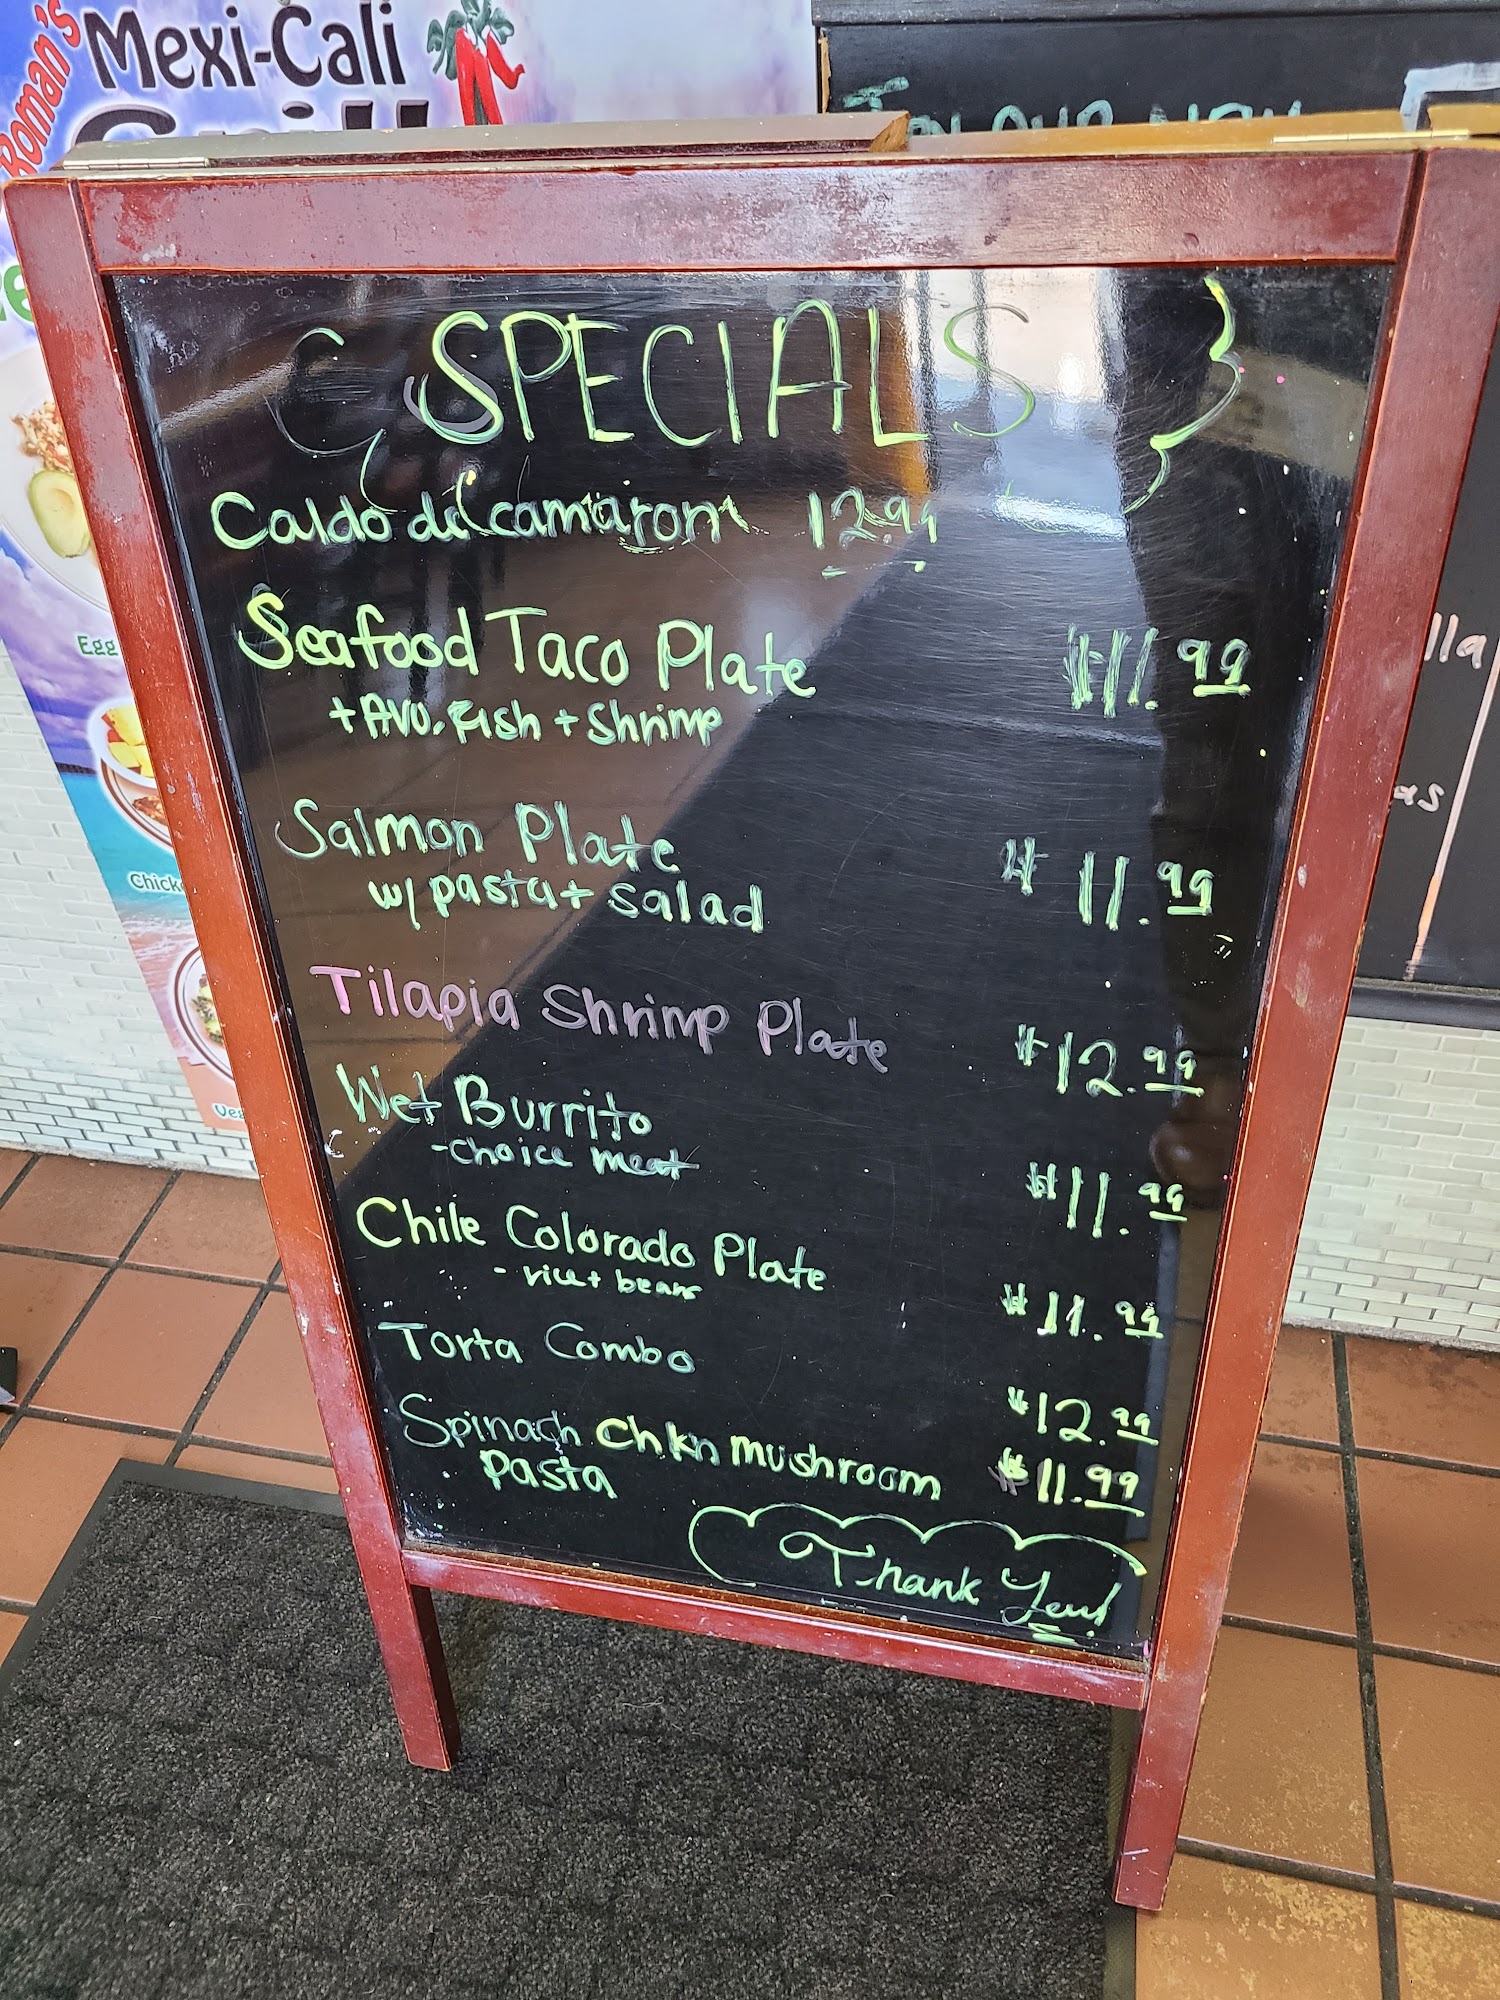 Roman's
Mexi-Cali
Grill
SPECIALS
Caldo de camaron 12.99
Seafood Taco Plate $11.99
+ Avo. Fish + Shrimp
Salmon Plate $11.99
w/ pasta + salad
Tilapia Shrimp Plate $12.99
Wet Burrito $11.99
- choice meat
Chile Colorado Plate $11.99
- rice + beans
Torta Combo $12.99
Spinach chkn mushroom $11.99
pasta
Thank You!
Egg
Chick
Veg
lla
as